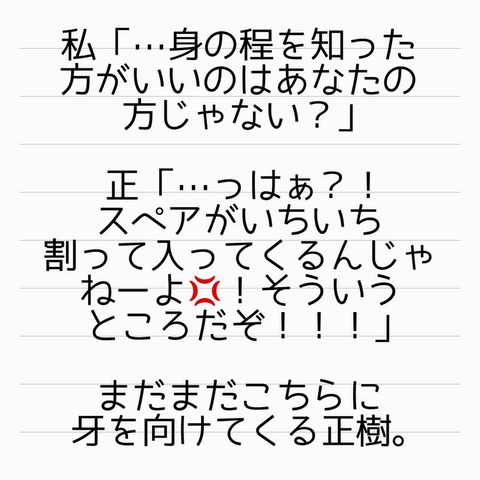 私「…身の程を知った
方がいいのはあなたの
方じゃない？」
正「…っはぁ？！
スペアがいちいち
割って入ってくるんじゃ
ねーよ💢！そういう
ところだぞ！！！」
まだまだこちらに
牙を向けてくる正樹。